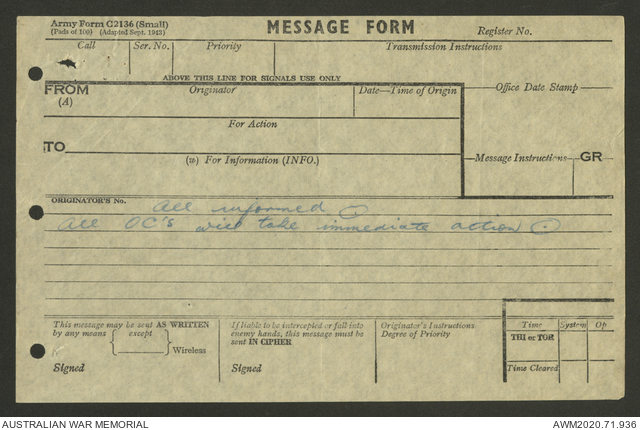 Army Form C2136 (Small)
(Pads of 100) (Adapted Sept. 1943)
MESSAGE FORM
Register No.
Call
Ser. No.
Priority
Transmission Instructions
ABOVE THIS LINE FOR SIGNALS USE ONLY
FROM
(A)
Originator
Date—Time of Origin
Office Date Stamp
For Action
TO
(w) For Information (INFO.)
Message Instructions
GR
ORIGINATOR'S No.
All informed
All OC's will take immediate action
This message may be sent AS WRITTEN
by any means except
Wireless
Signed
If liable to be intercepted or fall into
enemy hands, this message must be
sent IN CIPHER
Signed
Originator's Instructions
Degree of Priority
Time
System
Op
THI or TOR
Time Cleared
AUSTRALIAN WAR MEMORIAL
AWM2020.71.936